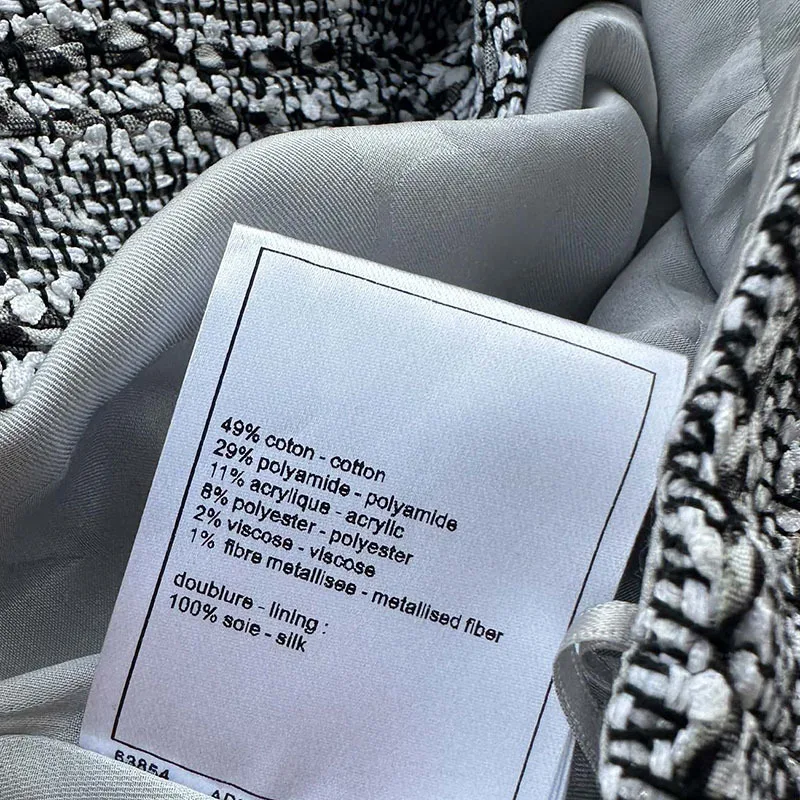 49% coton - cotton
29% polyamide - polyamide
11% acrylique - acrylic
8% polyester - polyester
2% viscose - viscose
1% fibre metallisee - metallised fiber
doublure - lining :
100% soie - silk
63854